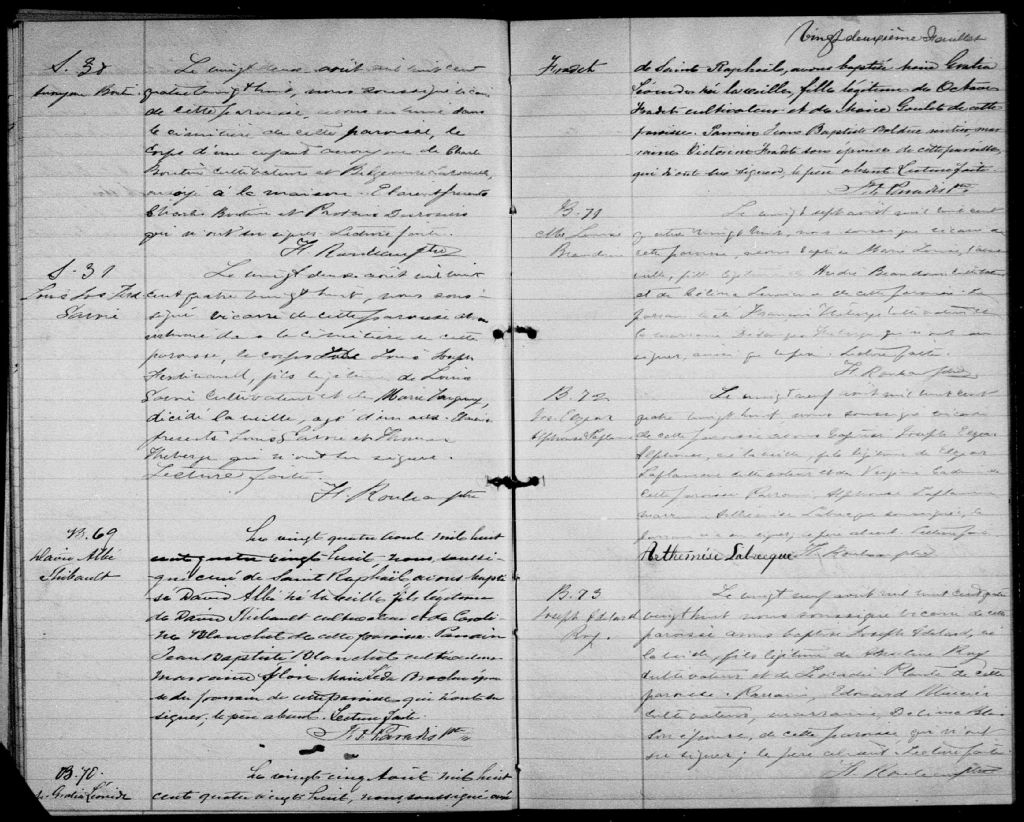 S. 38
Le vingt deux août mil huit cent
quatre vingt huit, nous soussigné vicaire
de cette paroisse, avons inhumé dans
le cimetière de cette paroisse, le
corps d'une enfant anonyme de Charles
Boutin cultivateur et
à la maison. Etaient présents
Charles Boutin et
qui n'ont su signer. Lecture faite.
H. Rouleau ptre
S. 39
Louis Jos Ferd
Le vingt deux août mil huit
cent quatre vingt huit, nous sous-
signé vicaire de cette paroisse avons
inhumé dans le cimetière de cette
paroisse, le corps Louis Joseph
Ferdinand, fils légitime de Louis
cultivateur et de Marie
décédé la veille, agé d'un an. Etaient
présents Louis et Thomas
Theberge qui n'ont su signer.
Lecture faite.
H. Rouleau ptre
B. 69
David Albé
Thibault
Le vingt quatre août mil huit
cent quatre vingt huit, nous, soussi-
gné curé de Saint Raphaël, avons bapti-
sé David Albé né la veille fils légitime
de David Thibault cultivateur et de Caroli-
ne Blanchet de cette paroisse. Parrain
Jean Baptiste Blanchet cultivateur
Marraine
du parrain de cette paroisse qui n'ont su
signer, le père absent. Lecture faite.
Paradis Ptre
B. 70.
M. Gratia Léonide
Le vingt cinq Août mil huit
cents quatre vingt huit, nous, soussigné curé
Vingt deuxième Feuillet
Fradet
de Saint Raphaël, avons baptisé Marie Gratia
Léonide née la veille, fille légitime de Octave
Fradet cultivateur et de Marie Goulet de cette
paroisse. Parrain Jean Baptiste Bolduc rentier, mar-
raine Victorine Fradet son épouse de cette paroisse,
qui n'ont su signer, le père absent. Lecture faite.
Paradis Ptre
B. 71
Beaudoin
Le vingt sept août mil huit cent
quatre vingt huit, nous soussigné vicaire de
cette paroisse, avons baptisé Marie Louise, née la
veille, fille légitime de André Beaudoin cultivateur
et de Célina de cette paroisse. Le
parrain a été François Theberge cultivateur et
la marraine Theberge, qui n'ont su
signer, ainsi que le père. Lecture faite.
H. Rouleau ptre
B. 72
Jos. Elzear
Alphonse Laflamme
Le vingt neuf août mil huit cent
quatre vingt huit nous soussigné vicaire
de cette paroisse avons baptisé Joseph Elzear
Alphonse, né la veille, fils légitime de Elzear
Laflamme cultivateur et de
cette paroisse. Parrain, Alphonse Laflamme
marraine Labrecque soussignée, le
parrain n'a su signer, le père absent. Lecture faite
Arthemise Labrecque H. Rouleau ptre
B. 73
Joseph Adélard
Roy
Le vingt neuf août mil huit cent quatre
vingt huit nous soussigné vicaire de cette
paroisse avons baptisé Joseph Adelard, né
la veille, fils légitime de Roy
cultivateur et de Léocadie Plante de cette
paroisse. Parrain, Edouard Mercier
cultivateur, marraine, Delima
son épouse, de cette paroisse qui n'ont
su signer; le père absent. Lecture faite.
H. Rouleau ptre